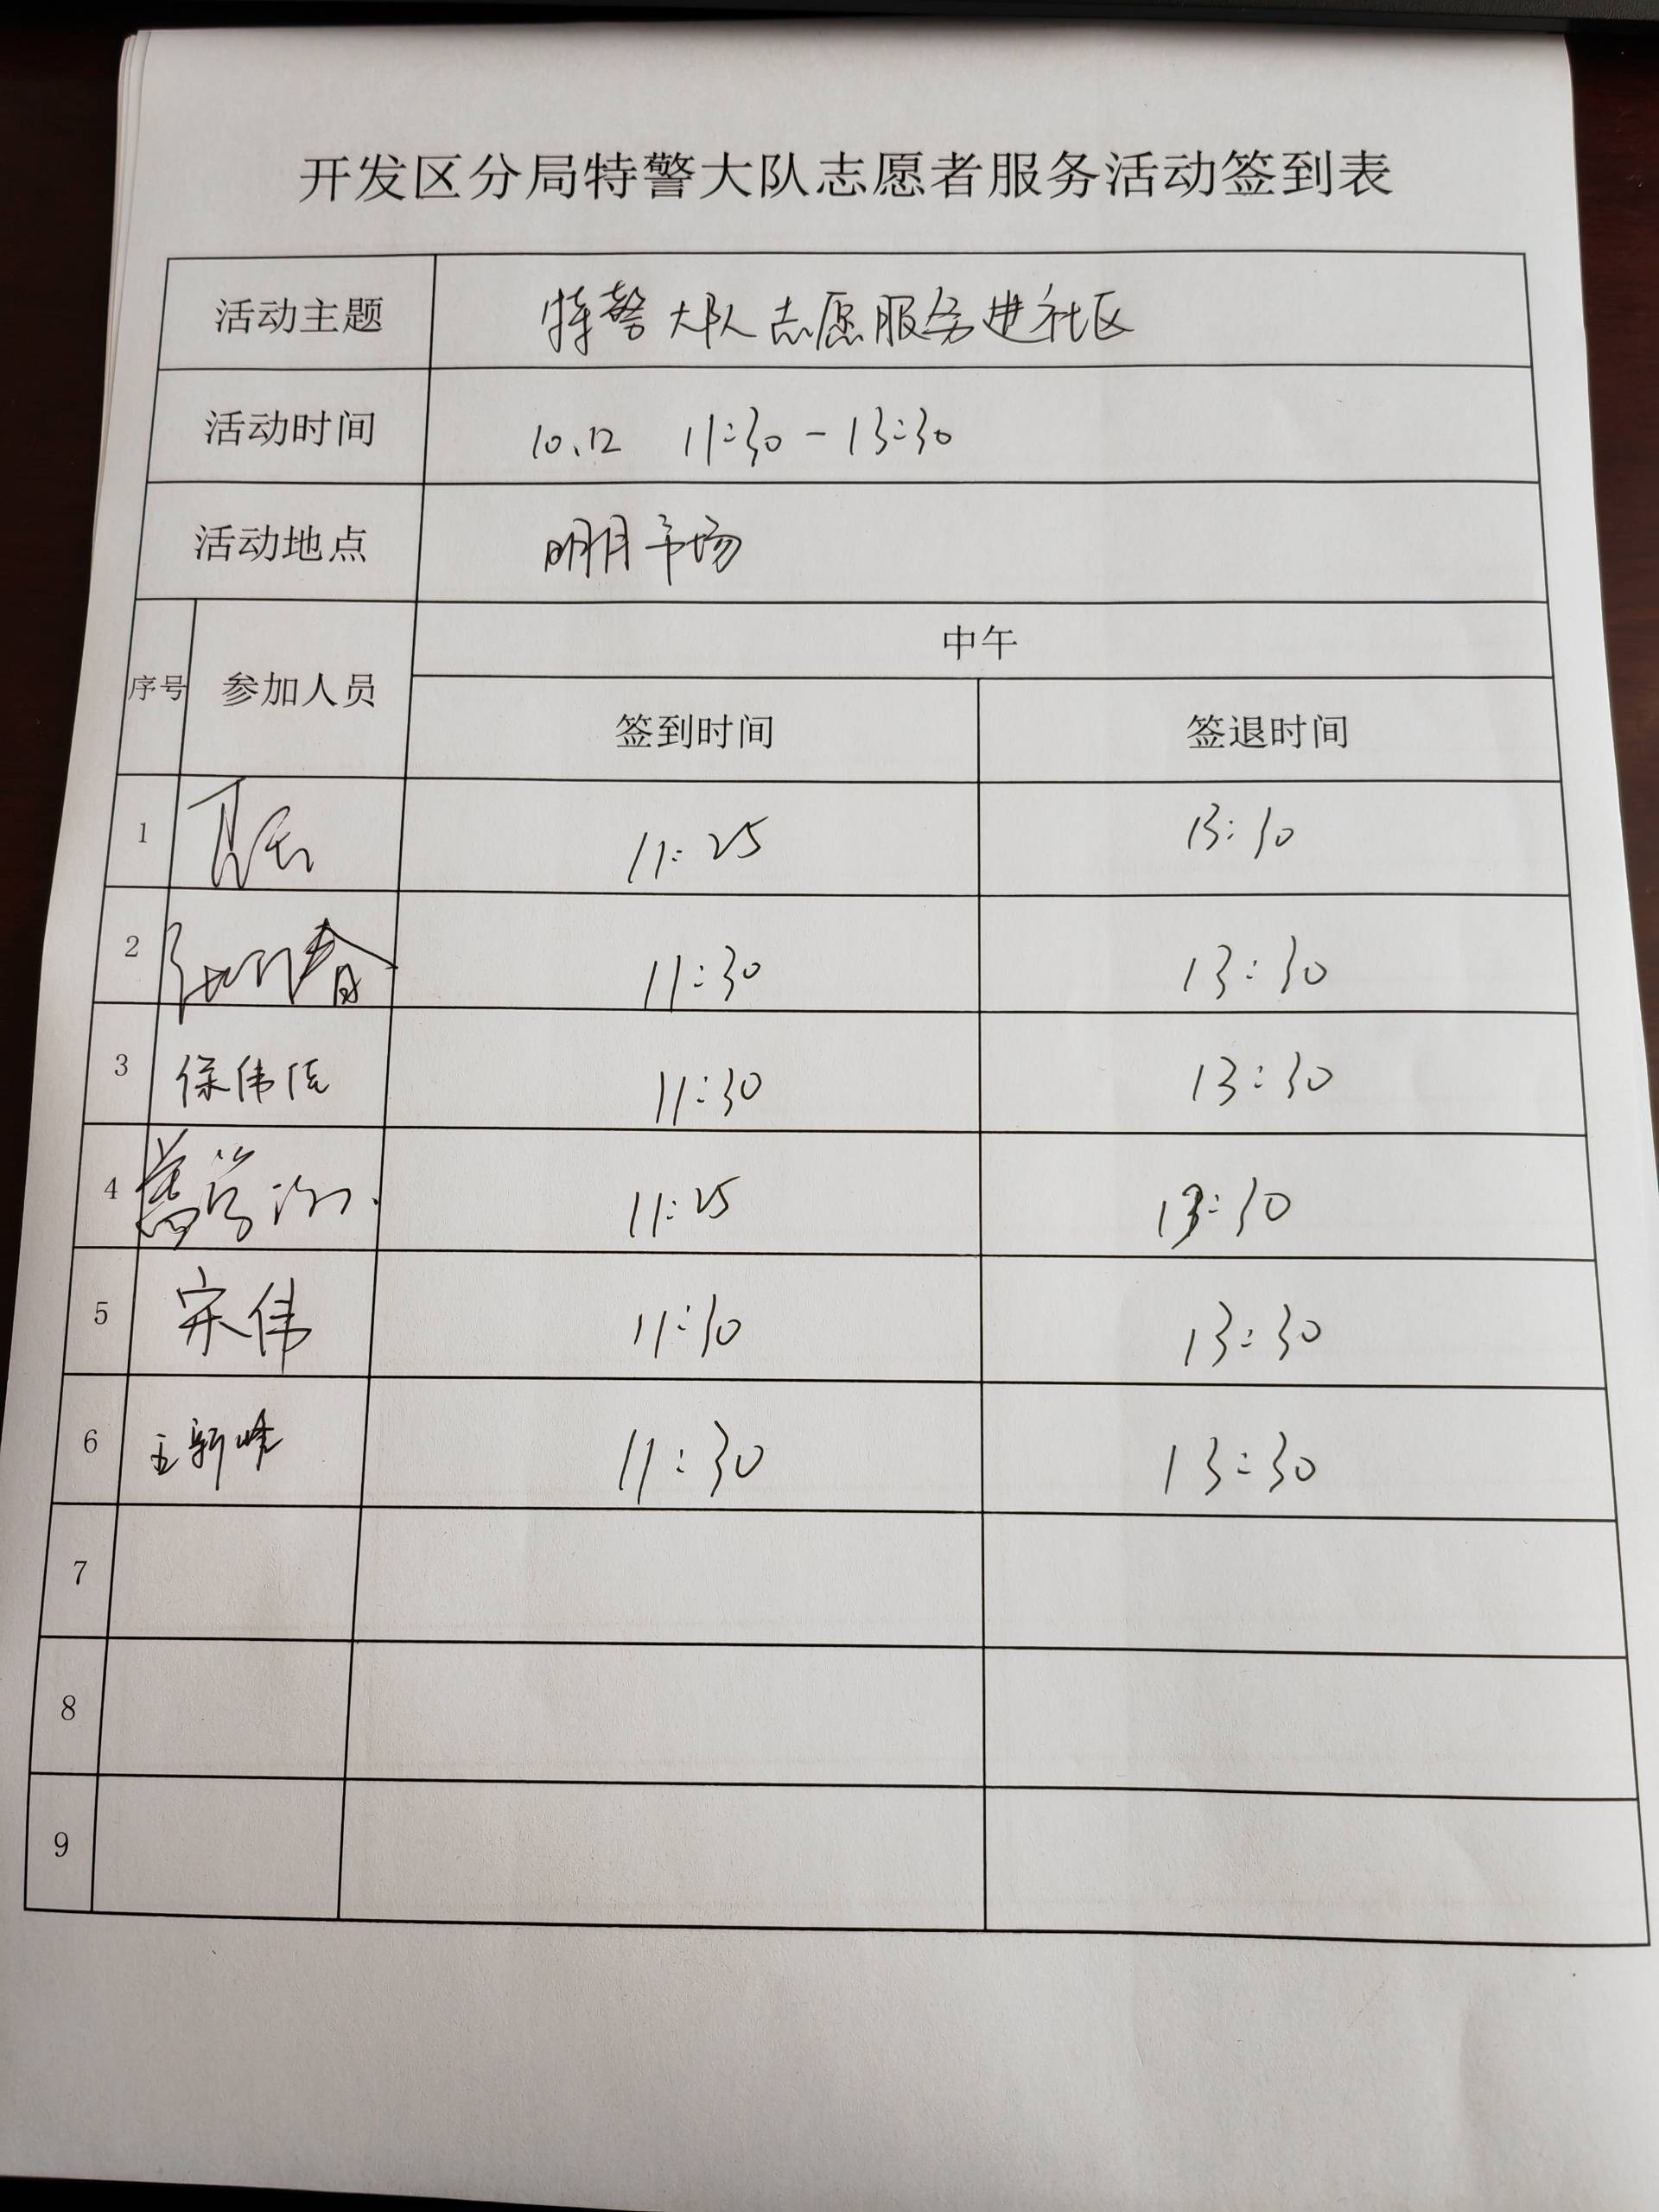 开发区分局特警大队志愿者服务活动签到表
活动主题 特警大队志愿服务进社区
活动时间 10.12 11:30-13:30
活动地点 明月市场
序号 参加人员 中午
签到时间 签退时间
1 11:25 13:30
2 春 11:30 13:30
3 伟 11:30 13:30
4 11:25 13:30
5 宋伟 11:30 13:30
6 王新峰 11:30 13:30
7
8
9